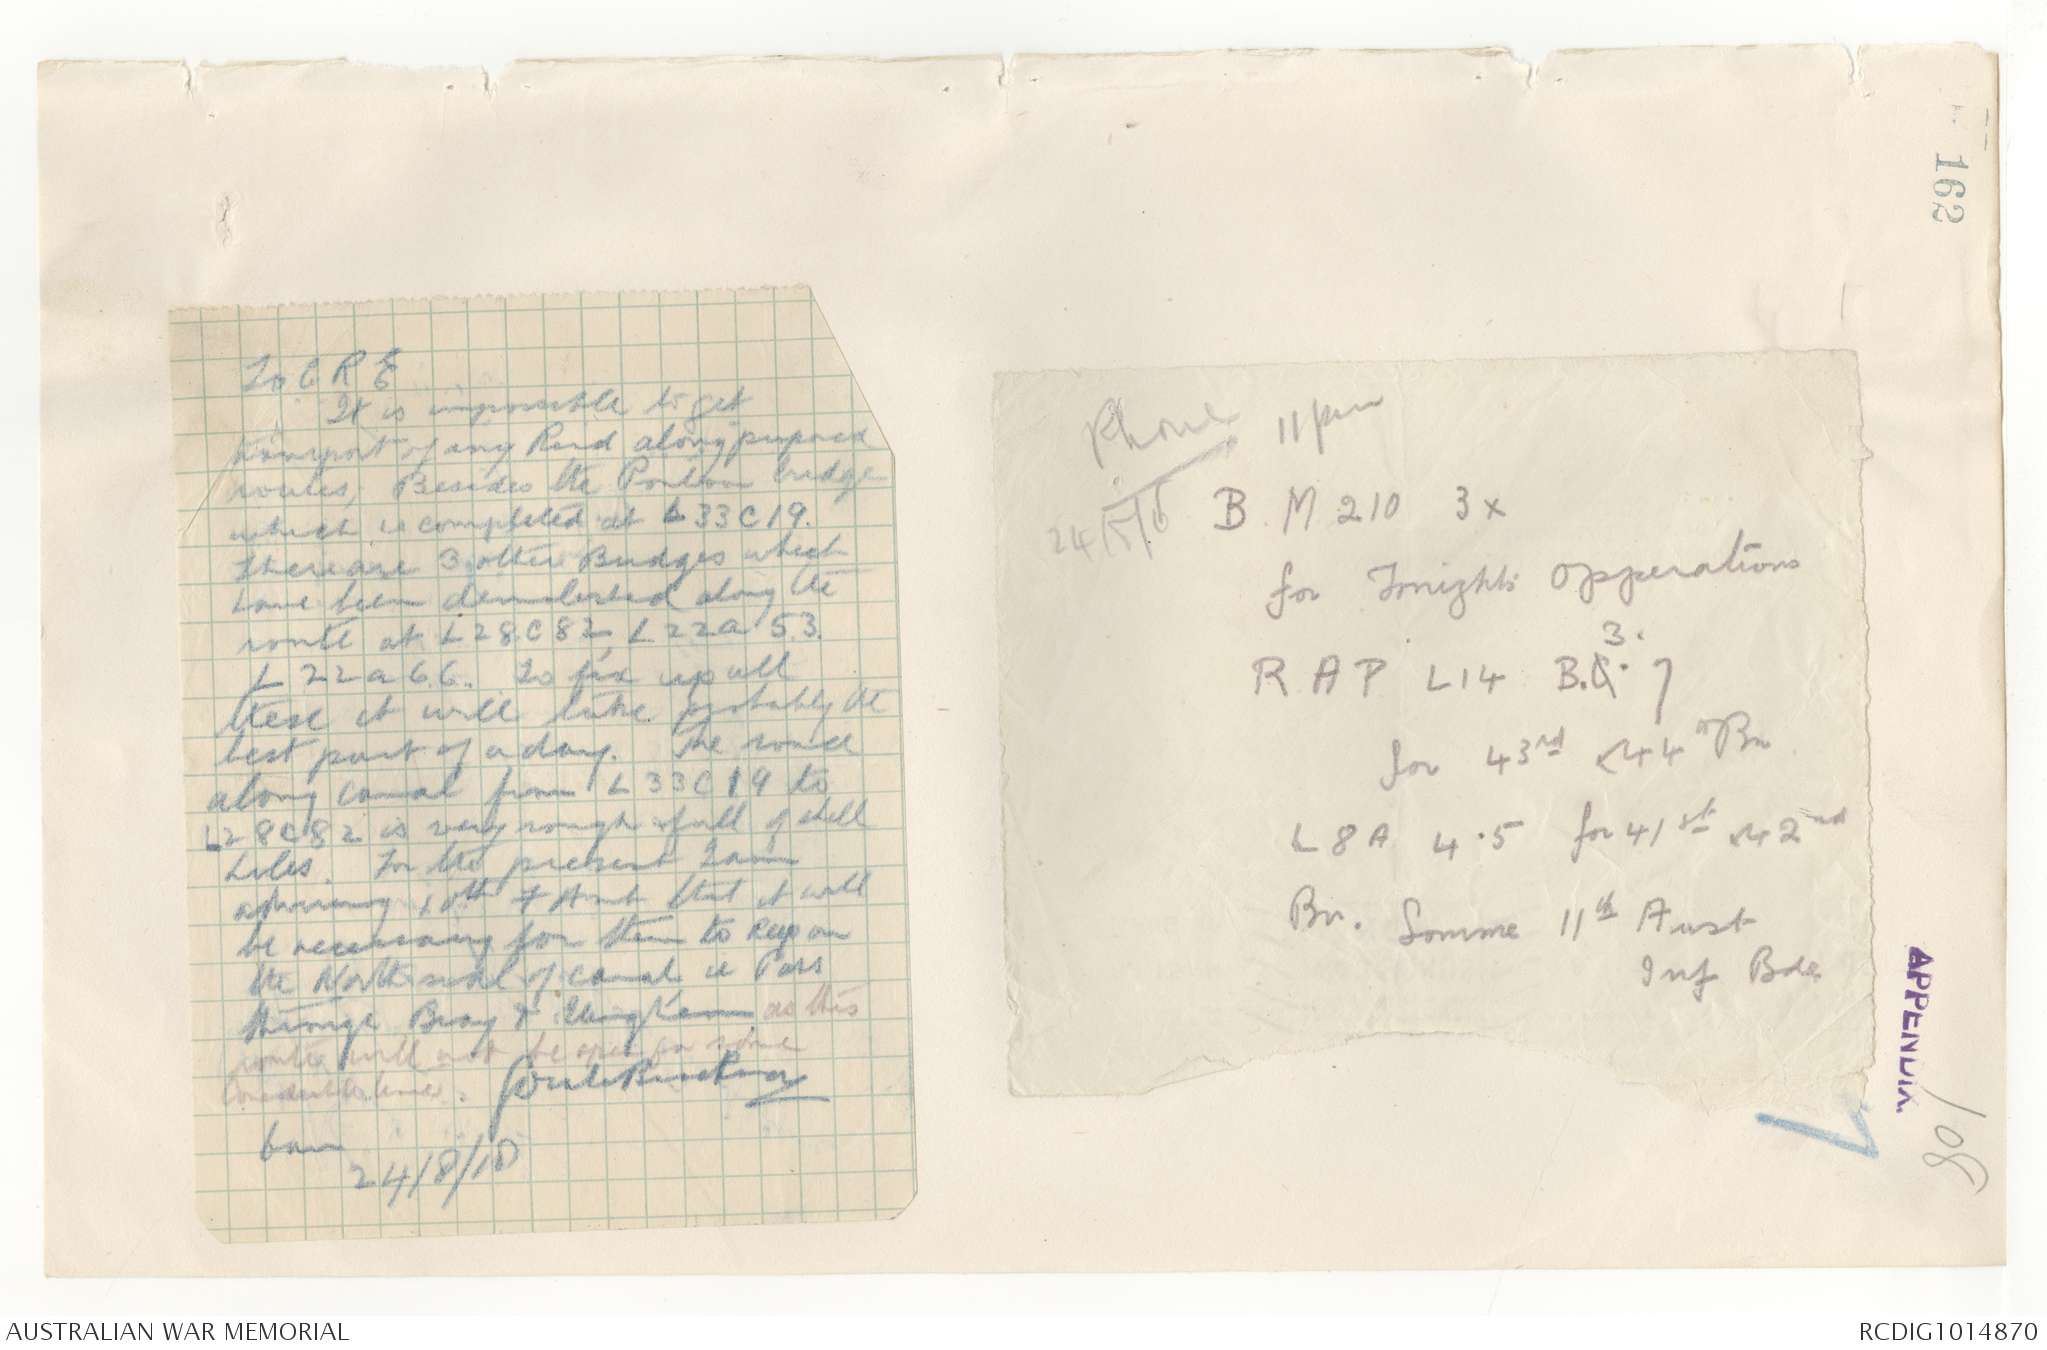 To C R E
It is impossible to get
transport of any kind along proposed
routes, Besides the Pontoon bridge
which is completed at L33C19.
There are 3 other Bridges which
have been demolished along the
route at L28C82, L22a 5.3.
L 22a 6.6. To fix up all
these it will take probably the
best part of a day. The road
along canal from L33C19 to
L28C82 is very rough & full of shell
holes. For the present I am
advising 10th F Amb that it will
be necessary for them to keep on
the North side of canal ie Pass
through Bray & as this
route will not be open for some
considerable time.
6am
24/8/18
Phone 11pm
24/8/18 B. M 210 3x
for Tonights Opperations
3.
R A P L14 B.6.7
for 43rd & 44th Bn
L8A 4.5 for 41st & 42nd
Bn. Somme 11th Aust
Inf Bde
162
APPENDIX
108
AUSTRALIAN WAR MEMORIAL
RCDIG1014870